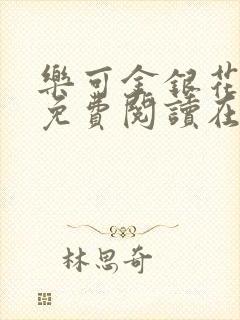 樂可金銀花
免費閱讀在
林思奇